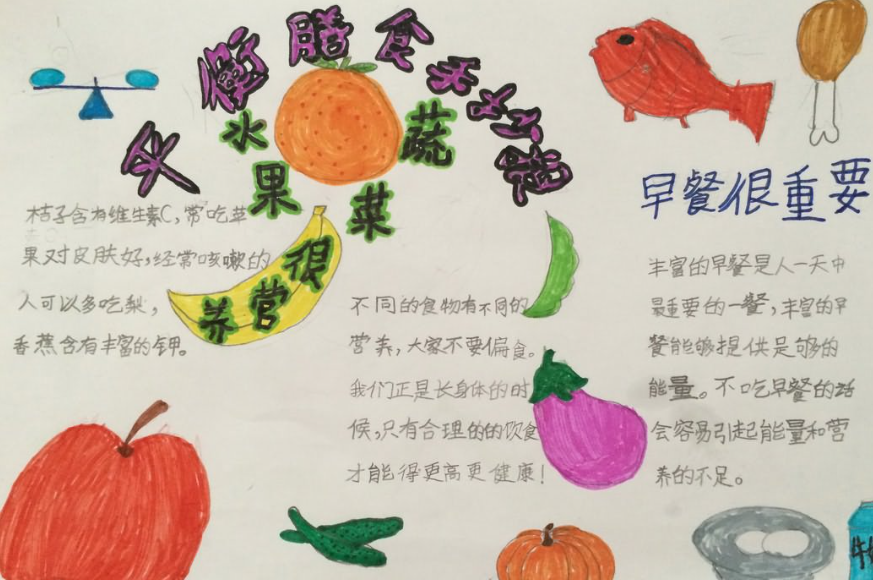 平衡膳食
水果
蔬菜
很营养
桔子含有维生素C,常吃苹
果对皮肤好,经常咳嗽的
人可以多吃梨,
香蕉含有丰富的钾。
不同的食物有不同的
营养,大家不要偏食。
我们正是长身体的时
候,只有合理的的饮食
才能得更高更健康!
早餐很重要
丰富的早餐是人一天中
最重要的一餐,丰富的早
餐能够提供足够的
能量。不吃早餐的话
会容易引起能量和营
养的不足。
牛